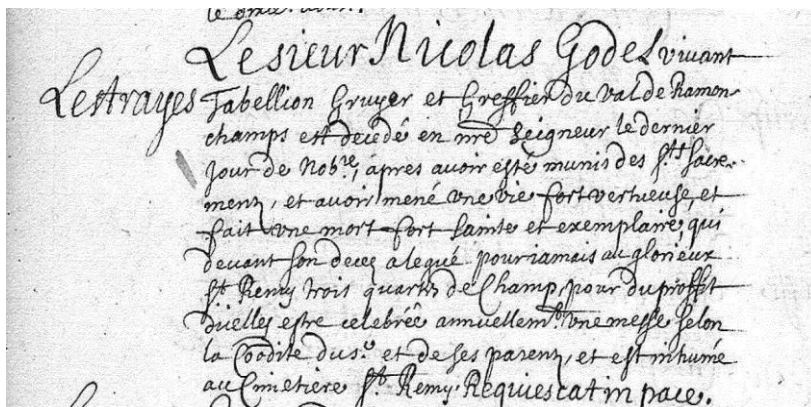 Le sieur Nicolas Godel vivant
Lestrayes
Tabellion Gruyer et Greffier du val de Ramon
champs est decedé en nre Seigneur le dernier
jour de Nobre, apres avoir esté munis des Sts Sacre
mentz, et avoir mené une vie fort vertueuse, et
fait une mort fort sainte et exemplaire, qui
devant son decez a legué pour jamais au glorieux
St Remy trois quartz de Champ, pour du proffit
d'iceluy estre celebrée annuellemt une messe selon
la du s. et de ses parentz, et est inhumé
au Cimetiere St Remy. Requiescat in pace.